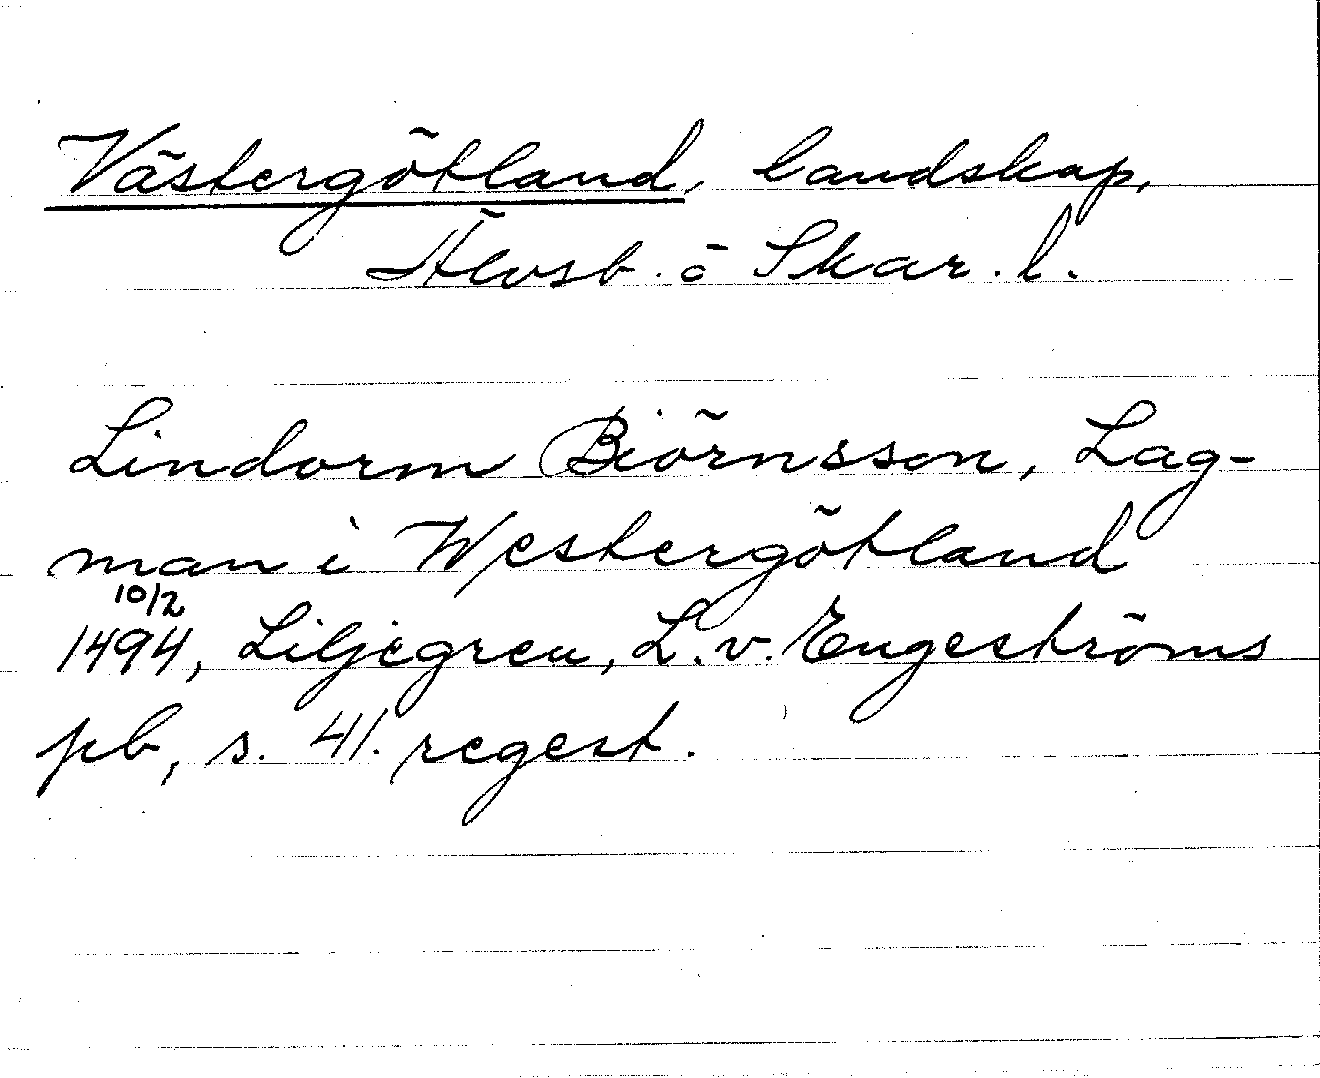 Västergötland, landskap,
Älvsb. o Skar. l.
Lindorm Biörnsson, Lag-
man i Westergötland
10/2
1494, Liljegren, L. v. Engeströms
pb, s. 41. regest.